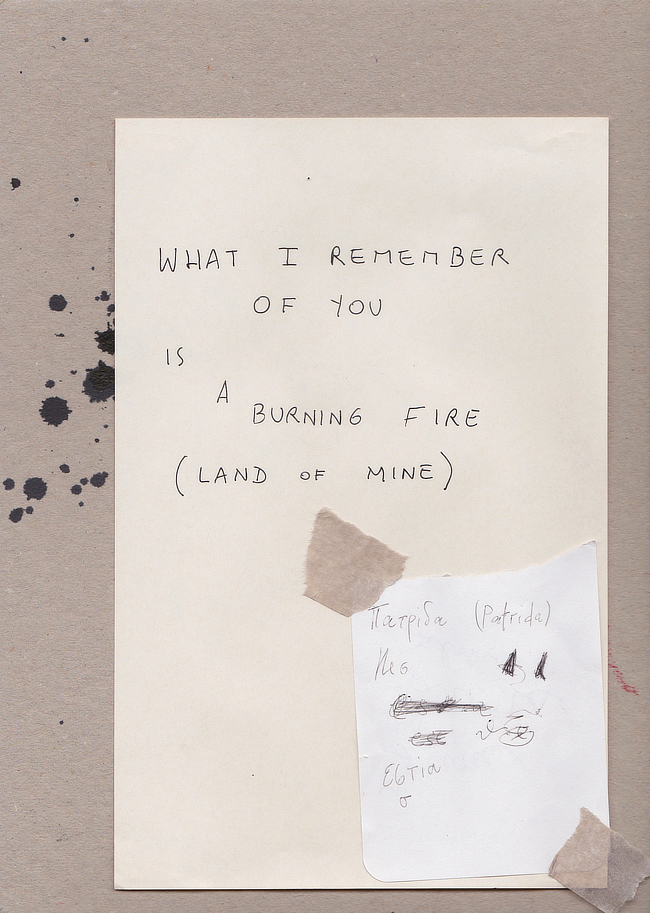 WHAT I REMEMBER
OF YOU
IS
A
BURNING FIRE
(LAND OF MINE)
Πατρίδα (Patrida)
εστία
σ